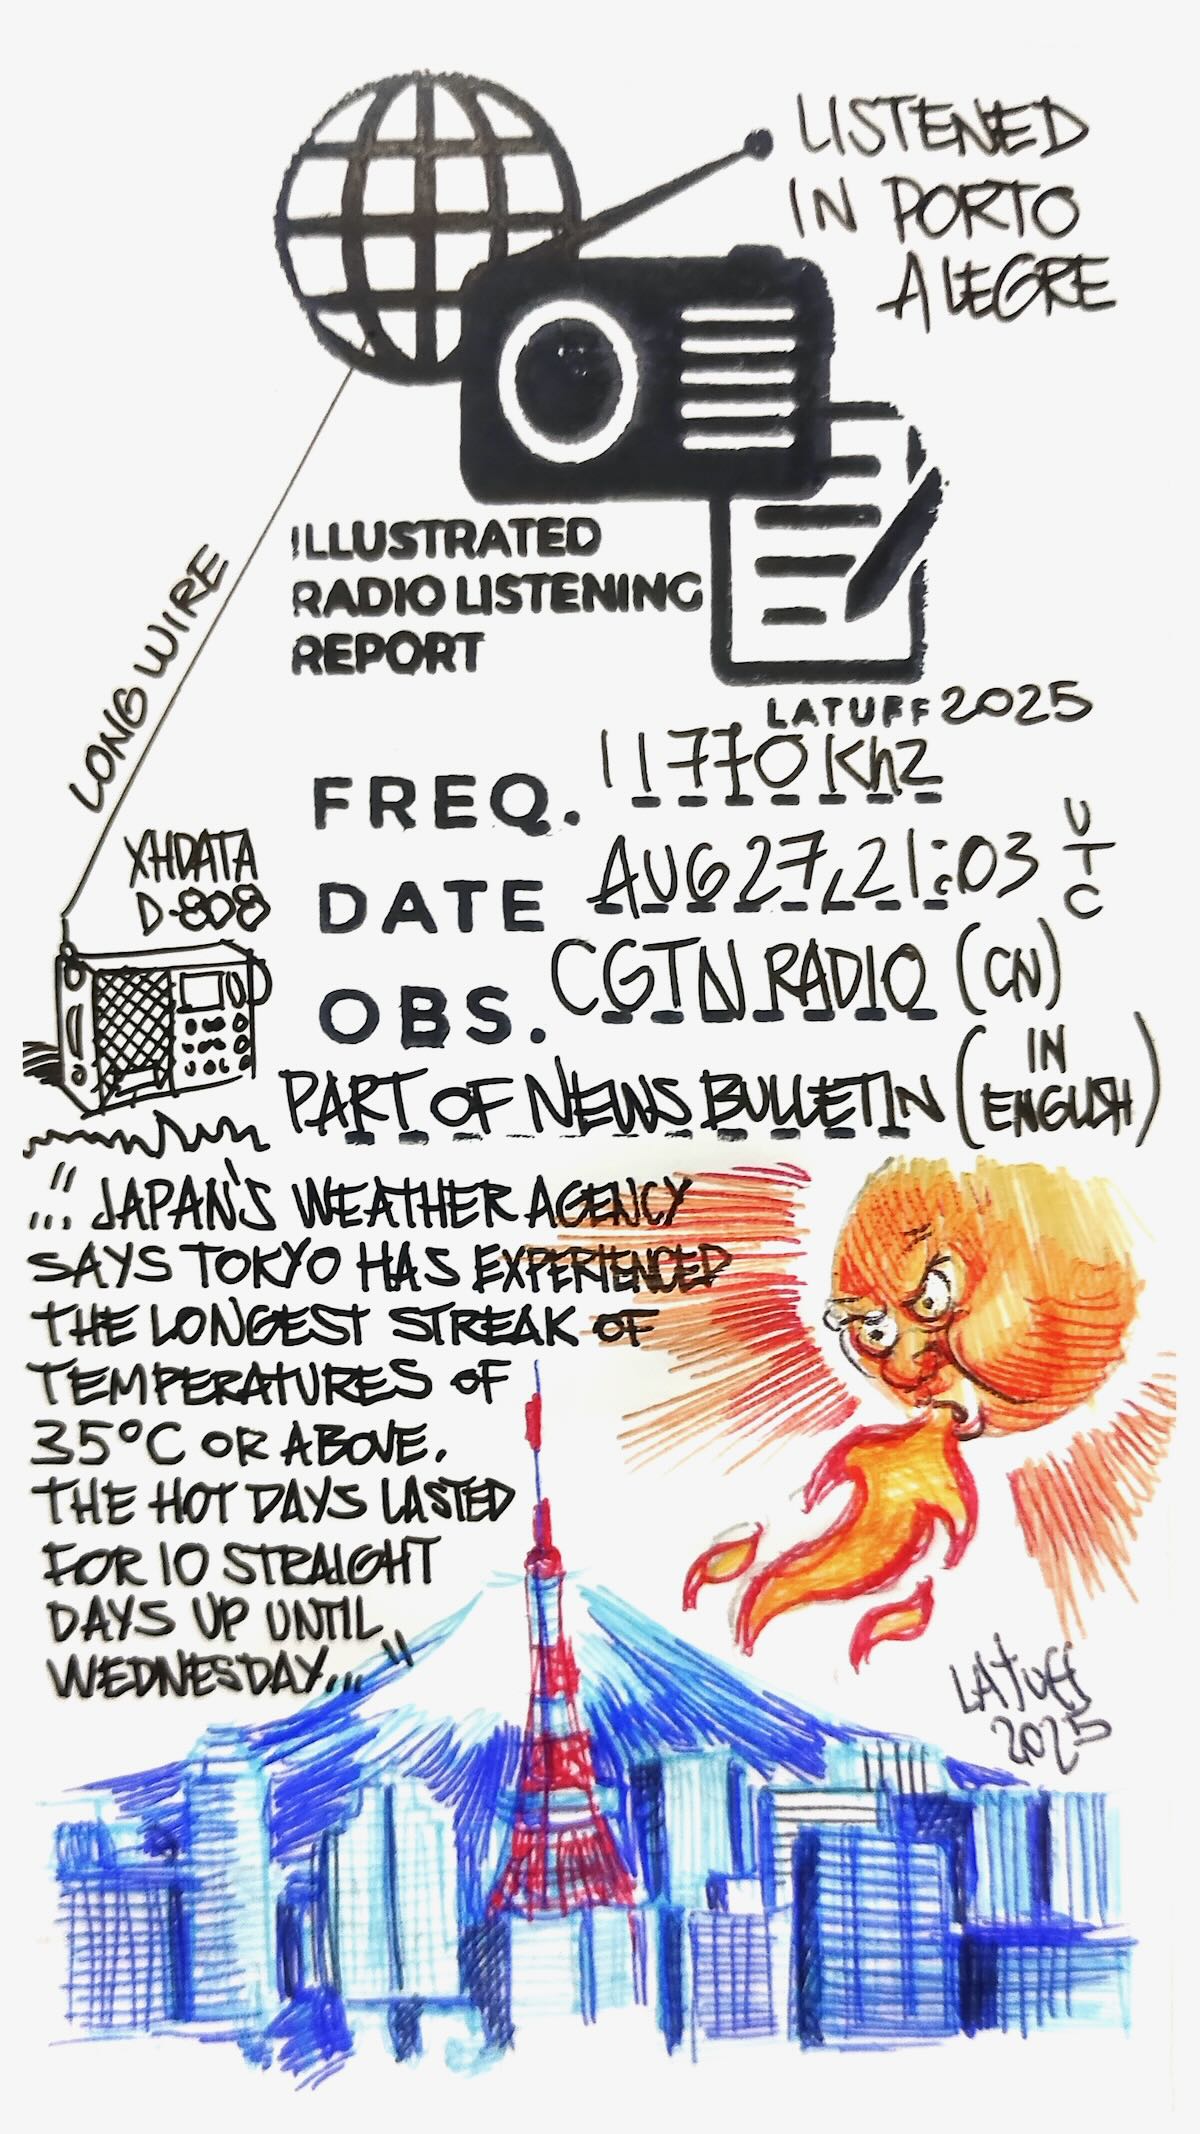 LISTENED
IN PORTO
ALEGRE
ILLUSTRATED
RADIO LISTENING
REPORT
LATUFF 2025
LONG WIRE
XHDATA
D-808
FREQ. 11770 Khz
DATE AUG 27, 21:03 UTC
OBS. CGTN RADIO (CN)
PART OF NEWS BULLETIN (IN ENGLISH)
"... JAPAN'S WEATHER AGENCY
SAYS TOKYO HAS EXPERIENCED
THE LONGEST STREAK OF
TEMPERATURES OF
35°C OR ABOVE.
THE HOT DAYS LASTED
FOR 10 STRAIGHT
DAYS UP UNTIL
WEDNESDAY..."
LATUFF
2025